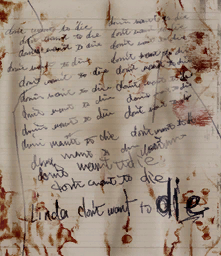 dont want to die dont want to die
dont want to die dont want to die
dont want to die dont want to die
dont want to die dont want to die
dont want to die dont want to die
dont want to die dont want to die
dont want to die dont want to die
dont want to die
dont want to die
dont want to die
dont want to die
dont want to die
Linda don't want to die